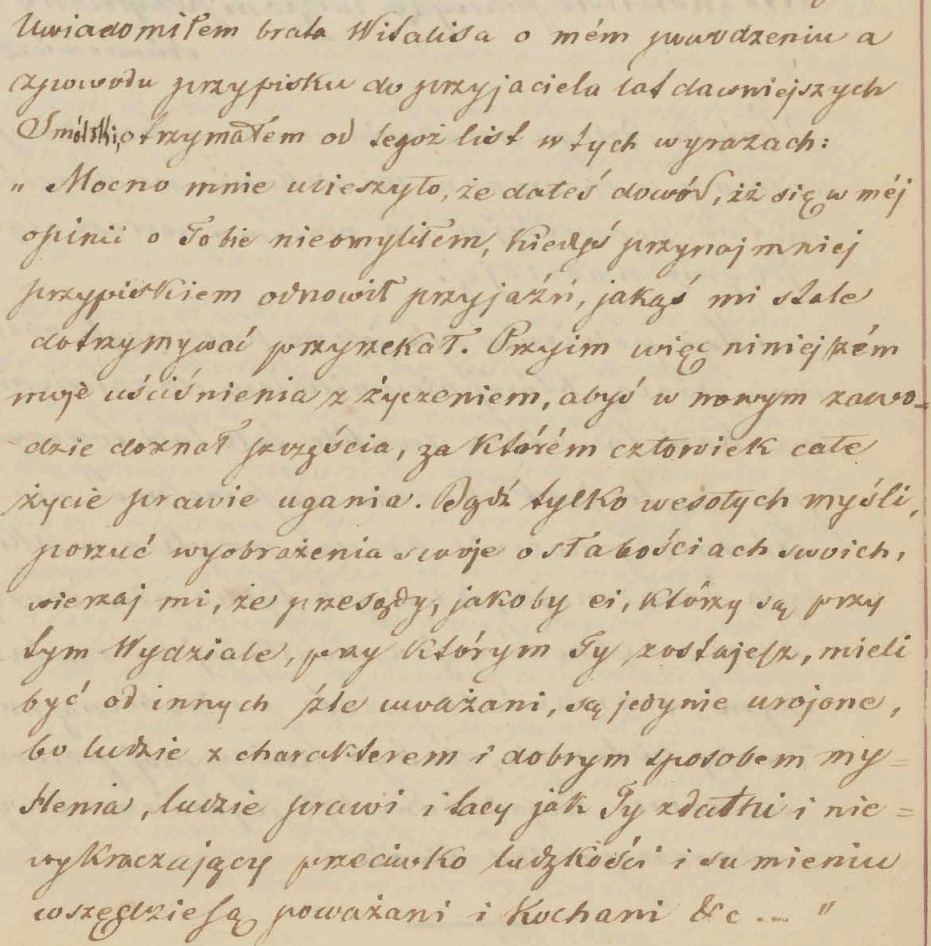 Uwiadomiłem brata Witalisa o mém powodzeniu a
zpowodu przypisku do przyjaciela lat dawniejszych
Smólski, otrzymałem od tegoż list w tych wyrazach:
„ Mocno mnie ucieszyło, że dałeś dowód, iż się w méj
opinii o Tobie nieomyliłem, kiedyś przynajmniej
przypiskiem odnowił przyjaźń, jakąś mi stale
dotrzymywać przyrzekał. Przyim więc niniejszém
moje uściśnienia z życzeniem, abyś w nowym zawo-
dzie doznał szczęścia, za którém człowiek całe
życie prawie ugania. Bądź tylko wesołych myśli,
porzuć wyobrażenia swoje o słabościach swoich,
wierzaj mi, że przesądy, jakoby ci, którzy są przy
tym Wydziale, przy którym Ty zostajesz, mieli
być od innych źle uważani, są jedynie urojone,
bo ludzie z charakterem i dobrym sposobem my=
ślenia, ludzie prawi i tacy jak Ty zdatni i nie=
wykraczający przeciwko ludzkości i sumieniu
wszędzie są poważani i kochani &c ... "